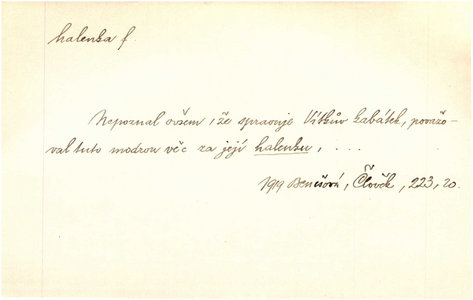 halenka f.
Nepoznal ovšem, že spravuje Vítkův kabátek, považo-
val tuto modrou věc za její halenku, ...
1919 Benešová, Člověk, 223, 20.